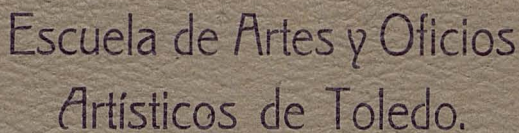 Escuela de Artes y Oficios
Artísticos de Toledo.